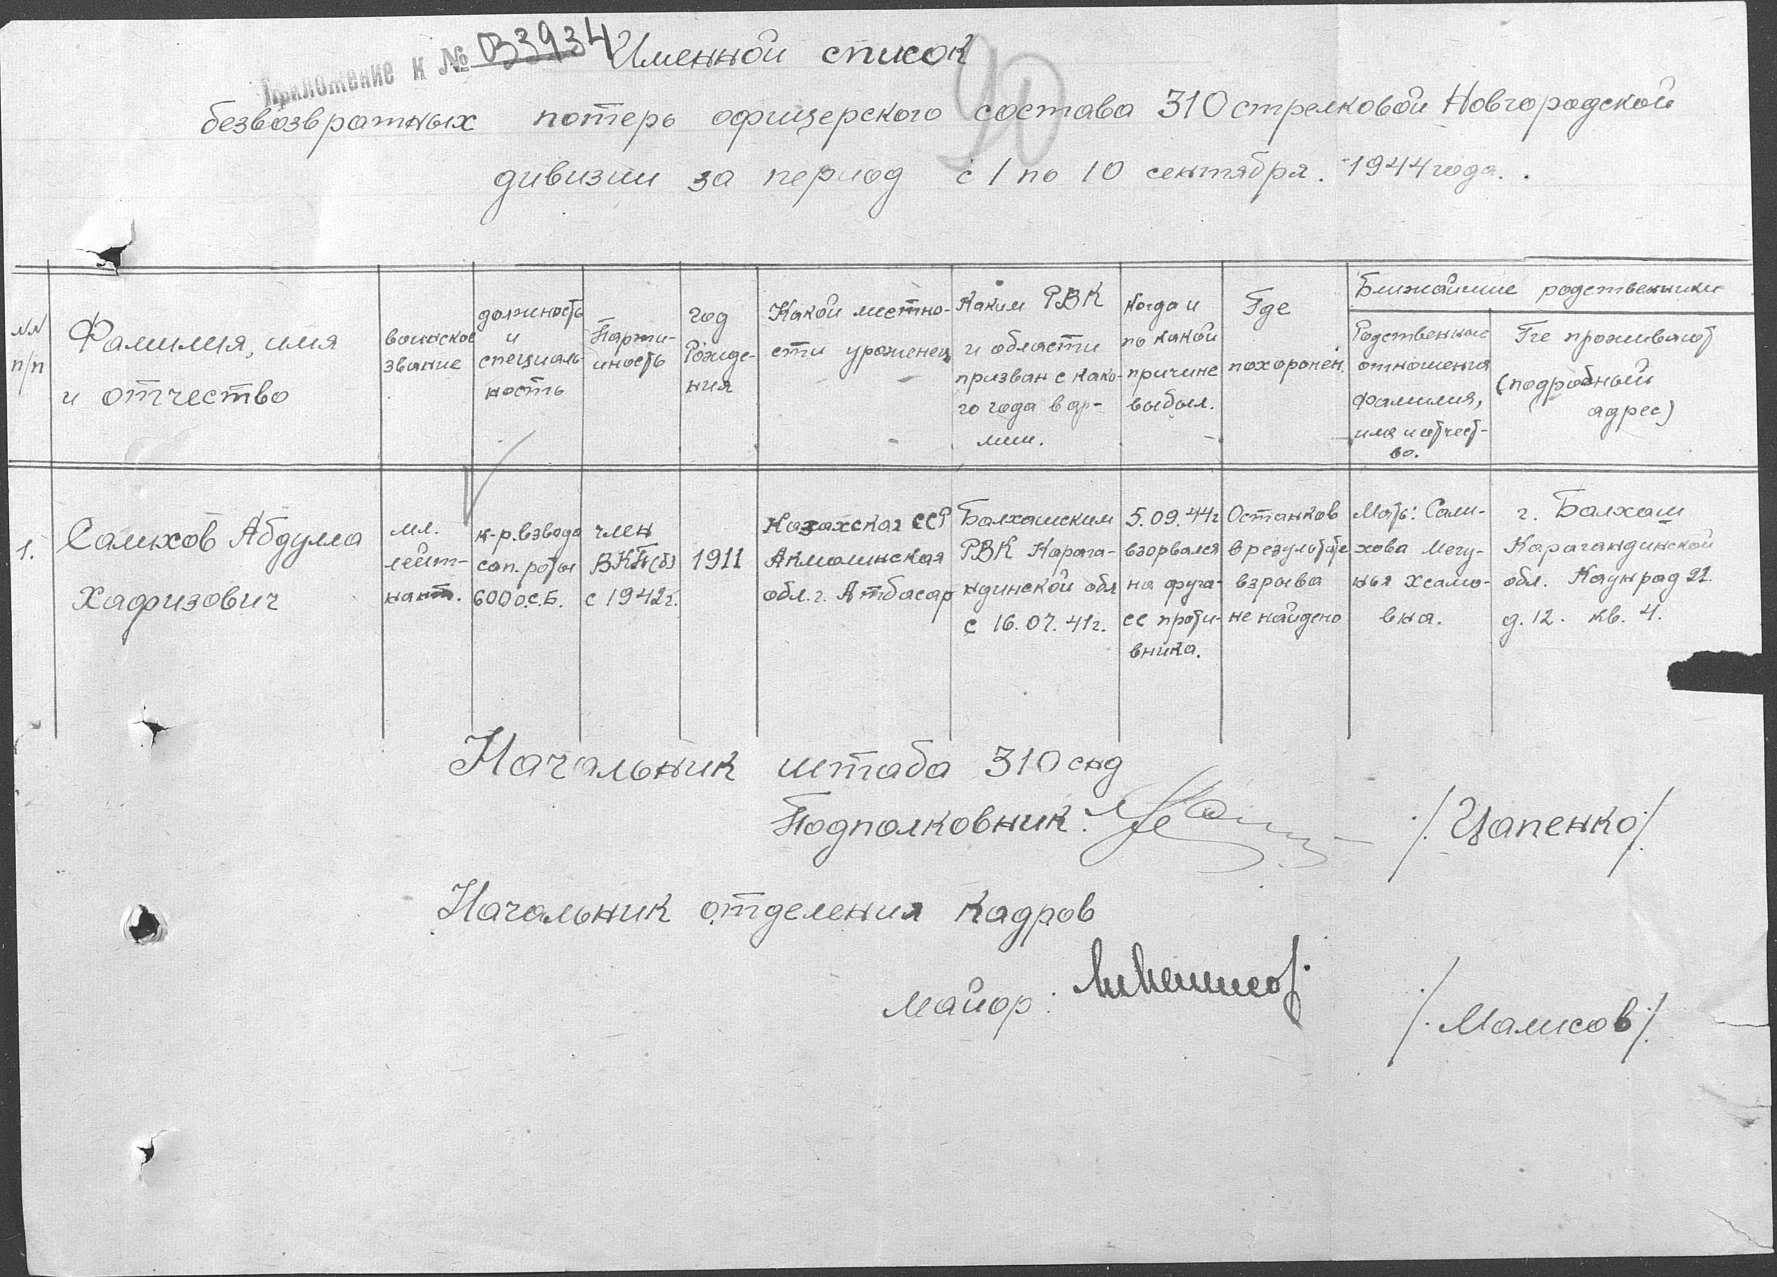 Приложение к № 033934
Именной список
90
безвозвратных потерь офицерского состава 310 стрелковой Новгородской
дивизии за период с 1 по 10 сентября 1944 года.
NN
п/п
Фамилия, имя
и отчество
воинское
звание
должность
и
специаль-
ность
Парти-
йность
год
Рожде-
ния
Какой местно-
сти уроженец
Каким РВК
и области
призван с како-
го года в ар-
мии.
Когда и
по какой
причине
выбыл.
Где
похоронен
Ближайшие родственники
Родственные
отношения
фамилия,
имя и отчест-
во.
Где проживают
(подробный
адрес)
1.
Салихов Абдулла
Хафизович
мл.
лейт-
нант.
к-р. взвода
сап. роты
600 о.с.Б.
член
ВКП(б)
с 1942г.
1911
Казахская ССР
Акмолинская
обл. г. Атбасар
Балхашским
РВК Карага-
ндинской обл
с 16.07.41г.
5.09.44г
взорвался
на фуга-
се проти-
вника.
Останков
в результате
взрыва
не найдено
Мать: Сали-
хова
вна.
г. Балхаш
Карагандинской
обл. Каунрад 22
д. 12. кв. 4.
Начальник штаба 310 снд
Подполковник:
/. Цапенко ./
Начальник отделения кадров
Майор:
/. Малисов ./